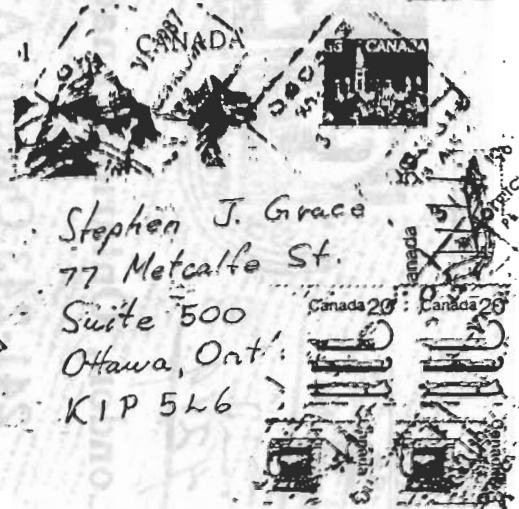 CANADA
CANADA
Stephen J. Grace
77 Metcalfe St.
Suite 500
Ottawa, Ont.
K1P 5L6
Canada
Canada 20
Canada 20
Canada
Canada